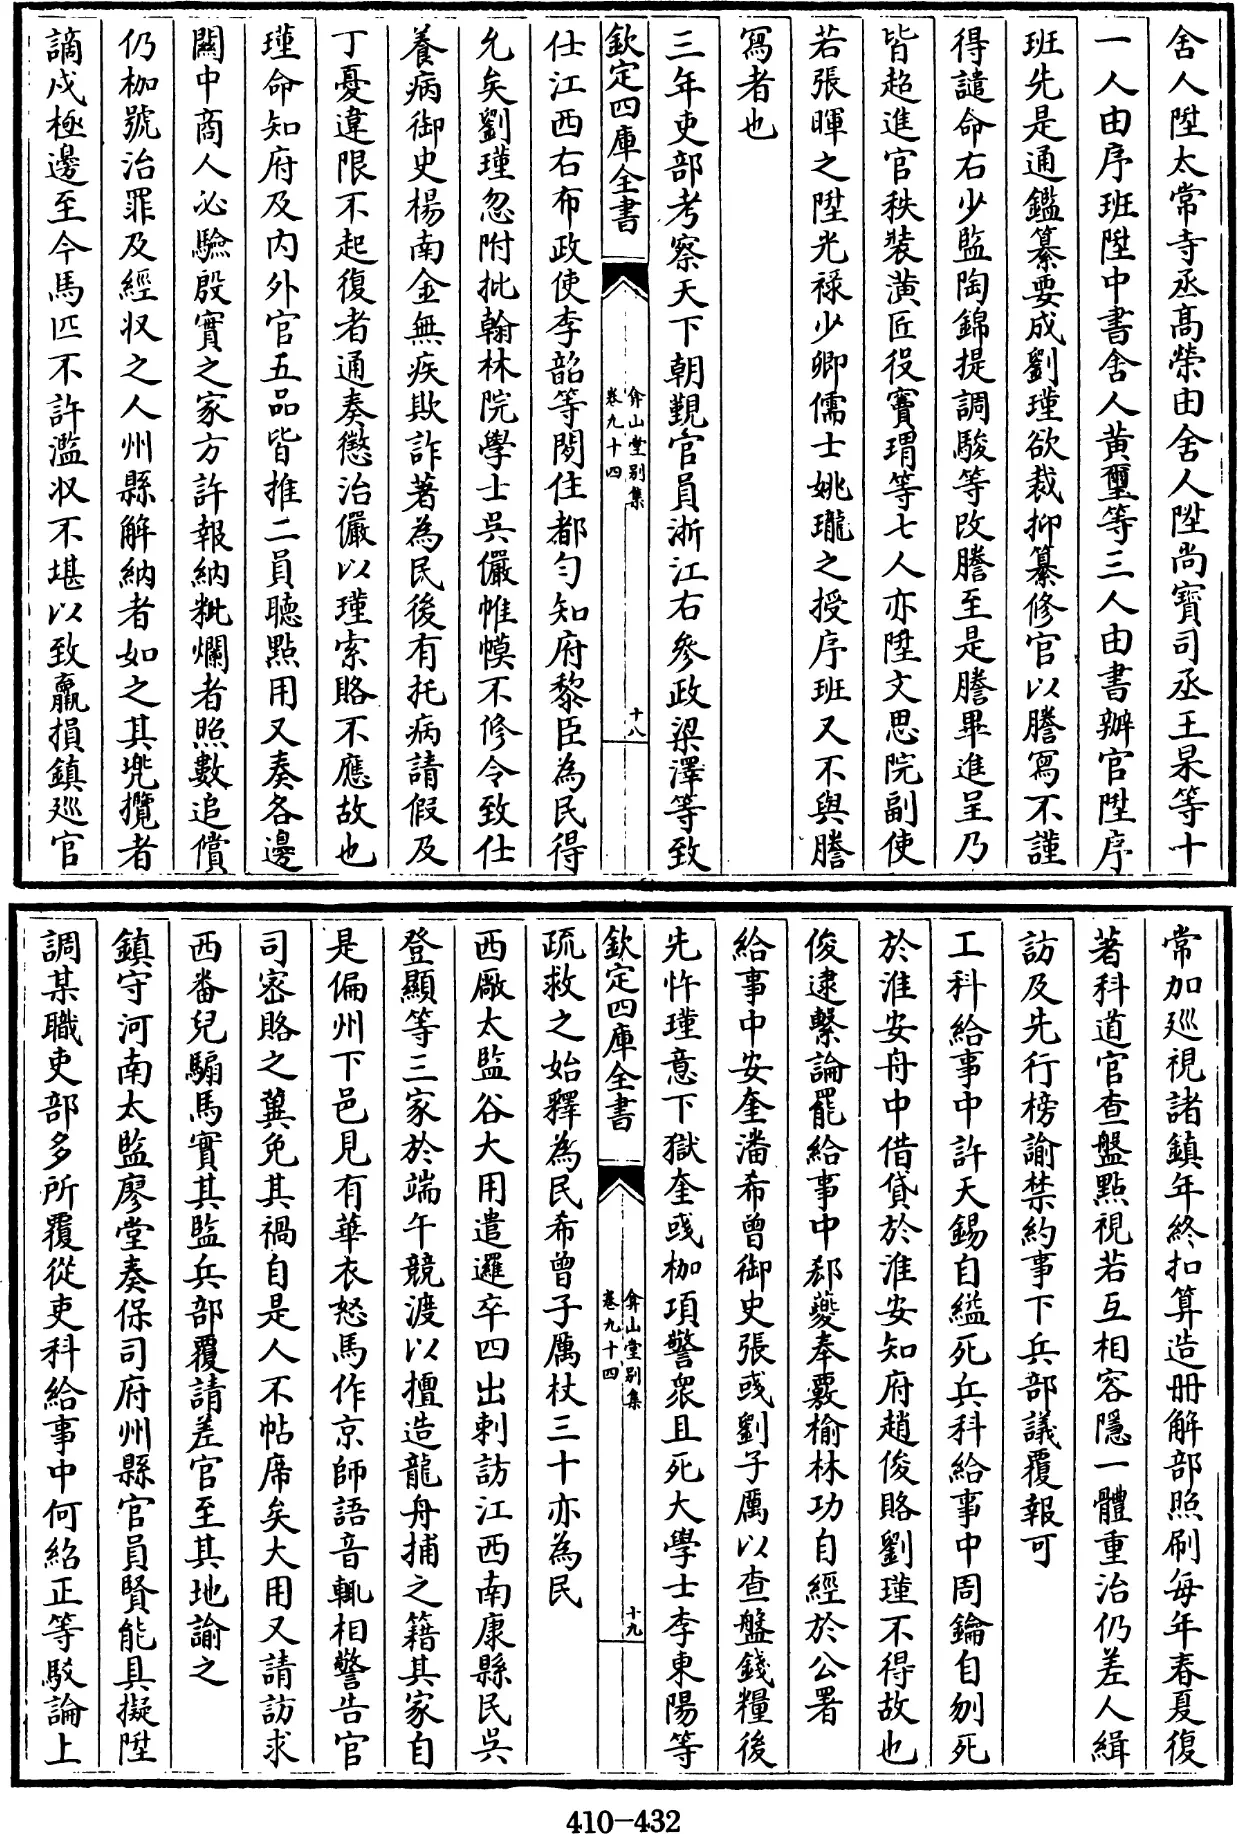 舍人陞太常寺丞髙榮由舍人陞尚寳司丞王杲等十
一人由序班陞中書舍人黄璽等三人由書辦官陞序
班先是通鑑纂要成劉瑾欲裁抑纂修官以謄寫不謹
得譴命右少監陶錦提調駿等改謄至是謄畢進呈乃
皆超進官秩裝潢匠役竇瑁等七人亦陞文思院副使
若張暉之陞光禄少卿儒士姚瓏之授序班又不與謄
寫者也
三年吏部考察天下朝覲官員浙江右參政梁澤等致
欽定四庫全書
弇山堂别集
卷九十四
十八
仕江西右布政使李韶等閒住都勻知府黎臣為民得
允矣劉瑾忽附批翰林院學士吳儼帷幙不修令致仕
養病御史楊南金無疾欺詐著為民後有托病請假及
丁憂違限不起復者通奏懲治儼以瑾索賂不應故也
瑾命知府及内外官五品皆推二員聽點用又奏各邊
闗中商人必驗殷實之家方許報納粃爛者照數追償
仍枷號治罪及經収之人州縣解納者如之其兠攬者
謫戍極邊至今馬匹不許濫収不堪以致羸損鎮廵官
常加廵視諸鎮年終扣算造册解部照刷每年春夏復
著科道官查盤點視若互相容隱一體重治仍差人緝
訪及先行榜諭禁約事下兵部議覆報可
工科給事中許天錫自縊死兵科給事中周鑰自刎死
於淮安舟中借貸於淮安知府趙俊賂劉瑾不得故也
俊逮繫論罷給事中郄夔奉覈榆林功自經於公署
給事中安奎潘希曾御史張彧劉子厲以查盤錢糧後
先忤瑾意下獄奎彧枷項警衆且死大學士李東陽等
欽定四庫全書
弇山堂别集
卷九十四
十九
疏救之始釋為民希曾子厲杖三十亦為民
西厰太監谷大用遣邏卒四出刺訪江西南康縣民吳
登顯等三家於端午競渡以擅造龍舟捕之籍其家自
是偏州下邑見有華衣怒馬作京師語音輒相警告官
司密賂之冀免其禍自是人不帖席矣大用又請訪求
西番兒騸馬實其監兵部覆請差官至其地諭之
鎮守河南太監廖堂奏保司府州縣官員賢能具擬陞
調某職吏部多所覆從吏科給事中何紹正等駁論上
410-432